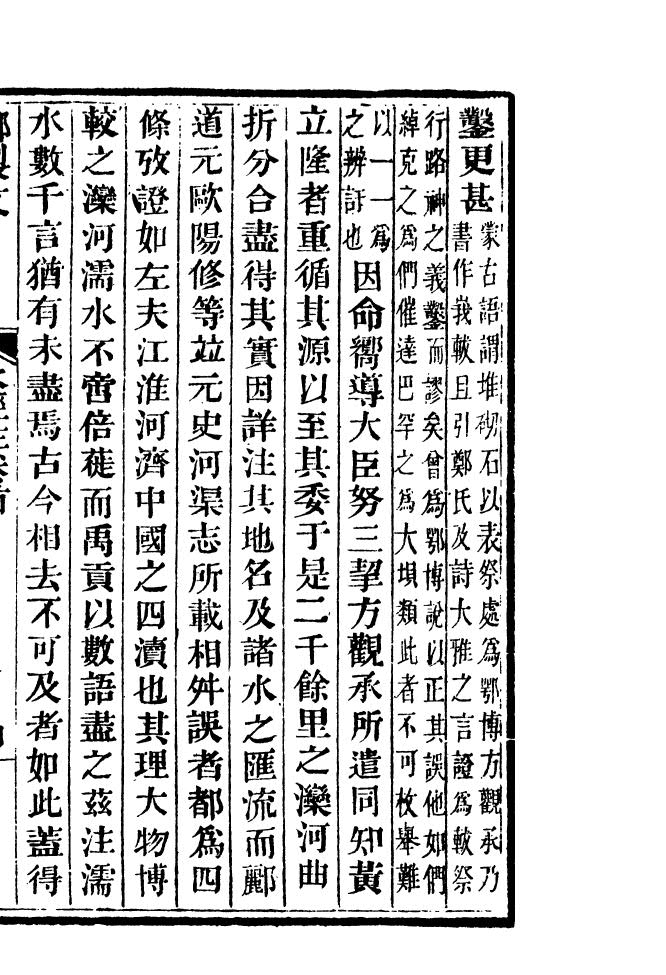 鑿更甚蒙古語謂堆砌石以表祭處爲鄂博方觀承乃
書作峩軷且引鄭氏及詩大雅之言證爲軷祭
行路神之義鑿而謬矣曾爲鄂博說以正其誤他如們
綽克之爲們催達巴罕之爲大垻類此者不可枚舉難
以一一爲
之辨訝也因命嚮導大臣努三挈方觀承所遣同知黃
立隆者重循其源以至其委于是二千餘里之灤河曲
折分合盡得其實因詳注其地名及諸水之匯流而酈
道元歐陽修等竝元史河渠志所載相舛誤者都爲四
條攷證如左夫江淮河濟中國之四瀆也其理大物博
較之灤河濡水不啻倍蓰而禹貢以數語盡之茲注濡
水數千言猶有未盡焉古今相去不可及者如此蓋得